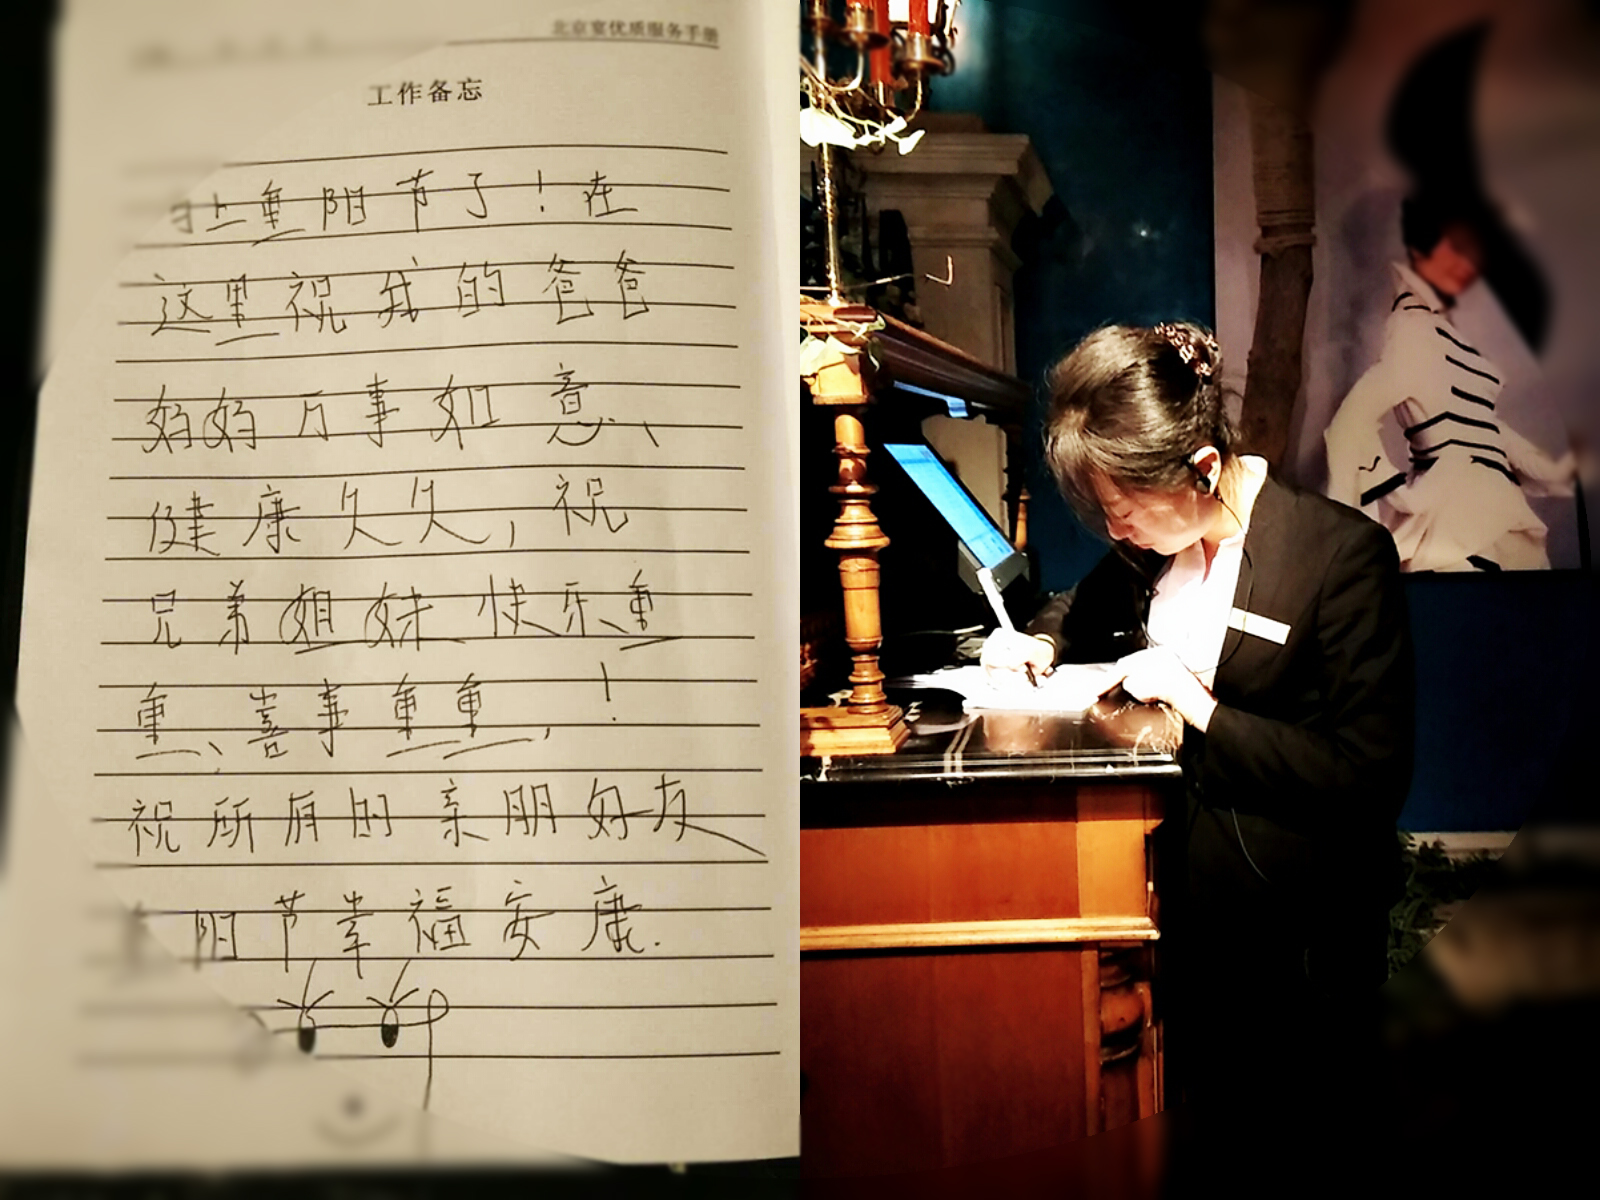 北京宴优质服务手册
工作备忘
马上重阳节了！在
这里祝我的爸爸
妈妈万事如意、
健康久久，祝
兄弟姐妹快乐重
重、喜事重重，！
祝所有的亲朋好友
阳节幸福安康.